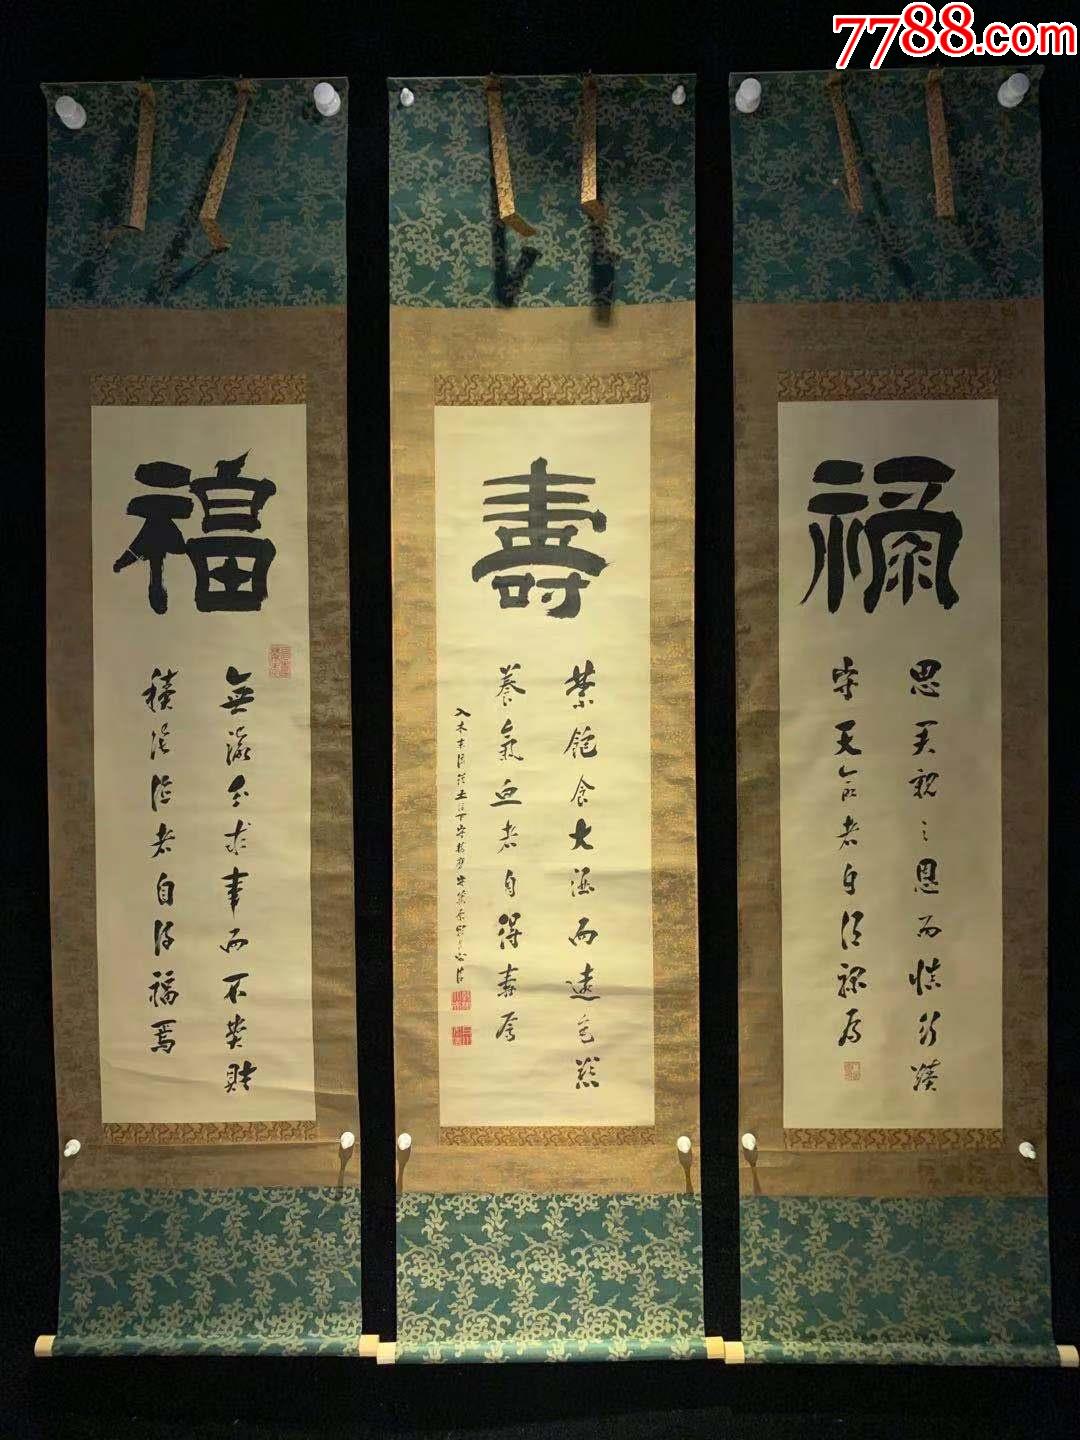 7788.com
福
無濫分求事而不費財
積陰徳者自得福焉
壽
禁飽食大酒而遠色慾
養氣血者自得壽焉
禄
思君親之恩而慎行蹟
守天命者自得禄焉